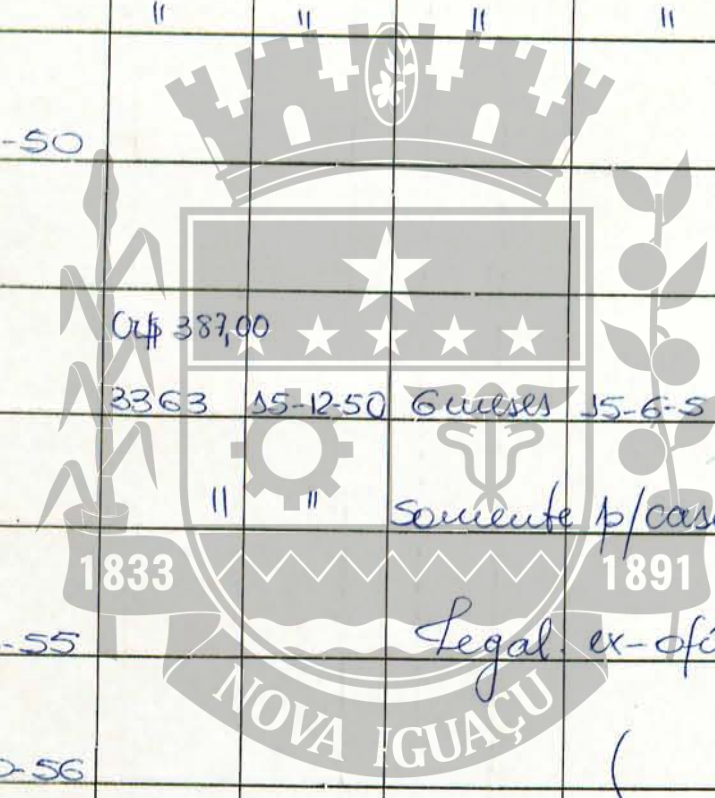 " " " "
-50
Cr$ 387,00
3363 15-12-50 6 meses 15-6-5
" " Somente p/cas
1833 1891
-55 Legal. ex-ofí
NOVA IGUAÇU
-56 (